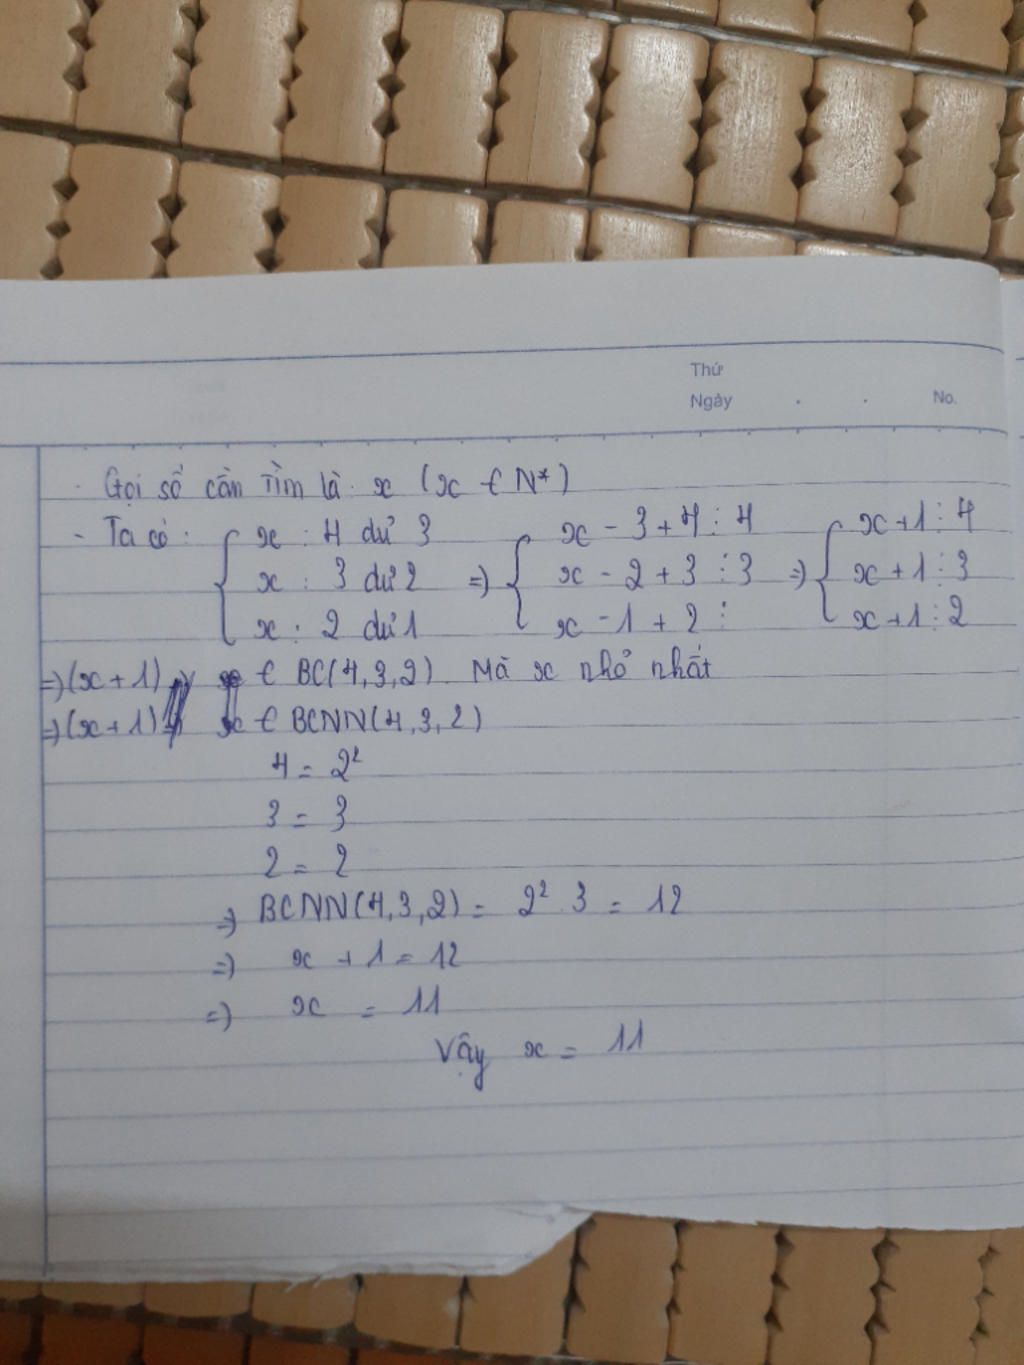 Thứ
Ngày . . No.
- Gọi số cần tìm là: x (x ∈ N*)
- Ta có: { x : 4 dư 3 { x - 3 + 4 ⋮ 4 { x + 1 ⋮ 4
x : 3 dư 2 => x - 2 + 3 ⋮ 3 => x + 1 ⋮ 3
x : 2 dư 1 x - 1 + 2 ⋮ x + 1 ⋮ 2
=> (x + 1) ∈ BC(4,3,2). Mà x nhỏ nhất
=> (x + 1) ∈ BCNN(4,3,2)
4 = 2²
3 = 3
2 = 2
=> BCNN(4,3,2) = 2² . 3 = 12
=> x + 1 = 12
=> x = 11
Vậy x = 11